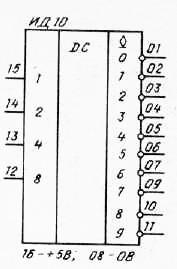 ИД10
DC
0 01
1 02
15 1
2 03
3 04
14 2
4 05
5 06
13 4
6 07
7 09
12 8
8 10
9 11
16-+5В; 08-0В